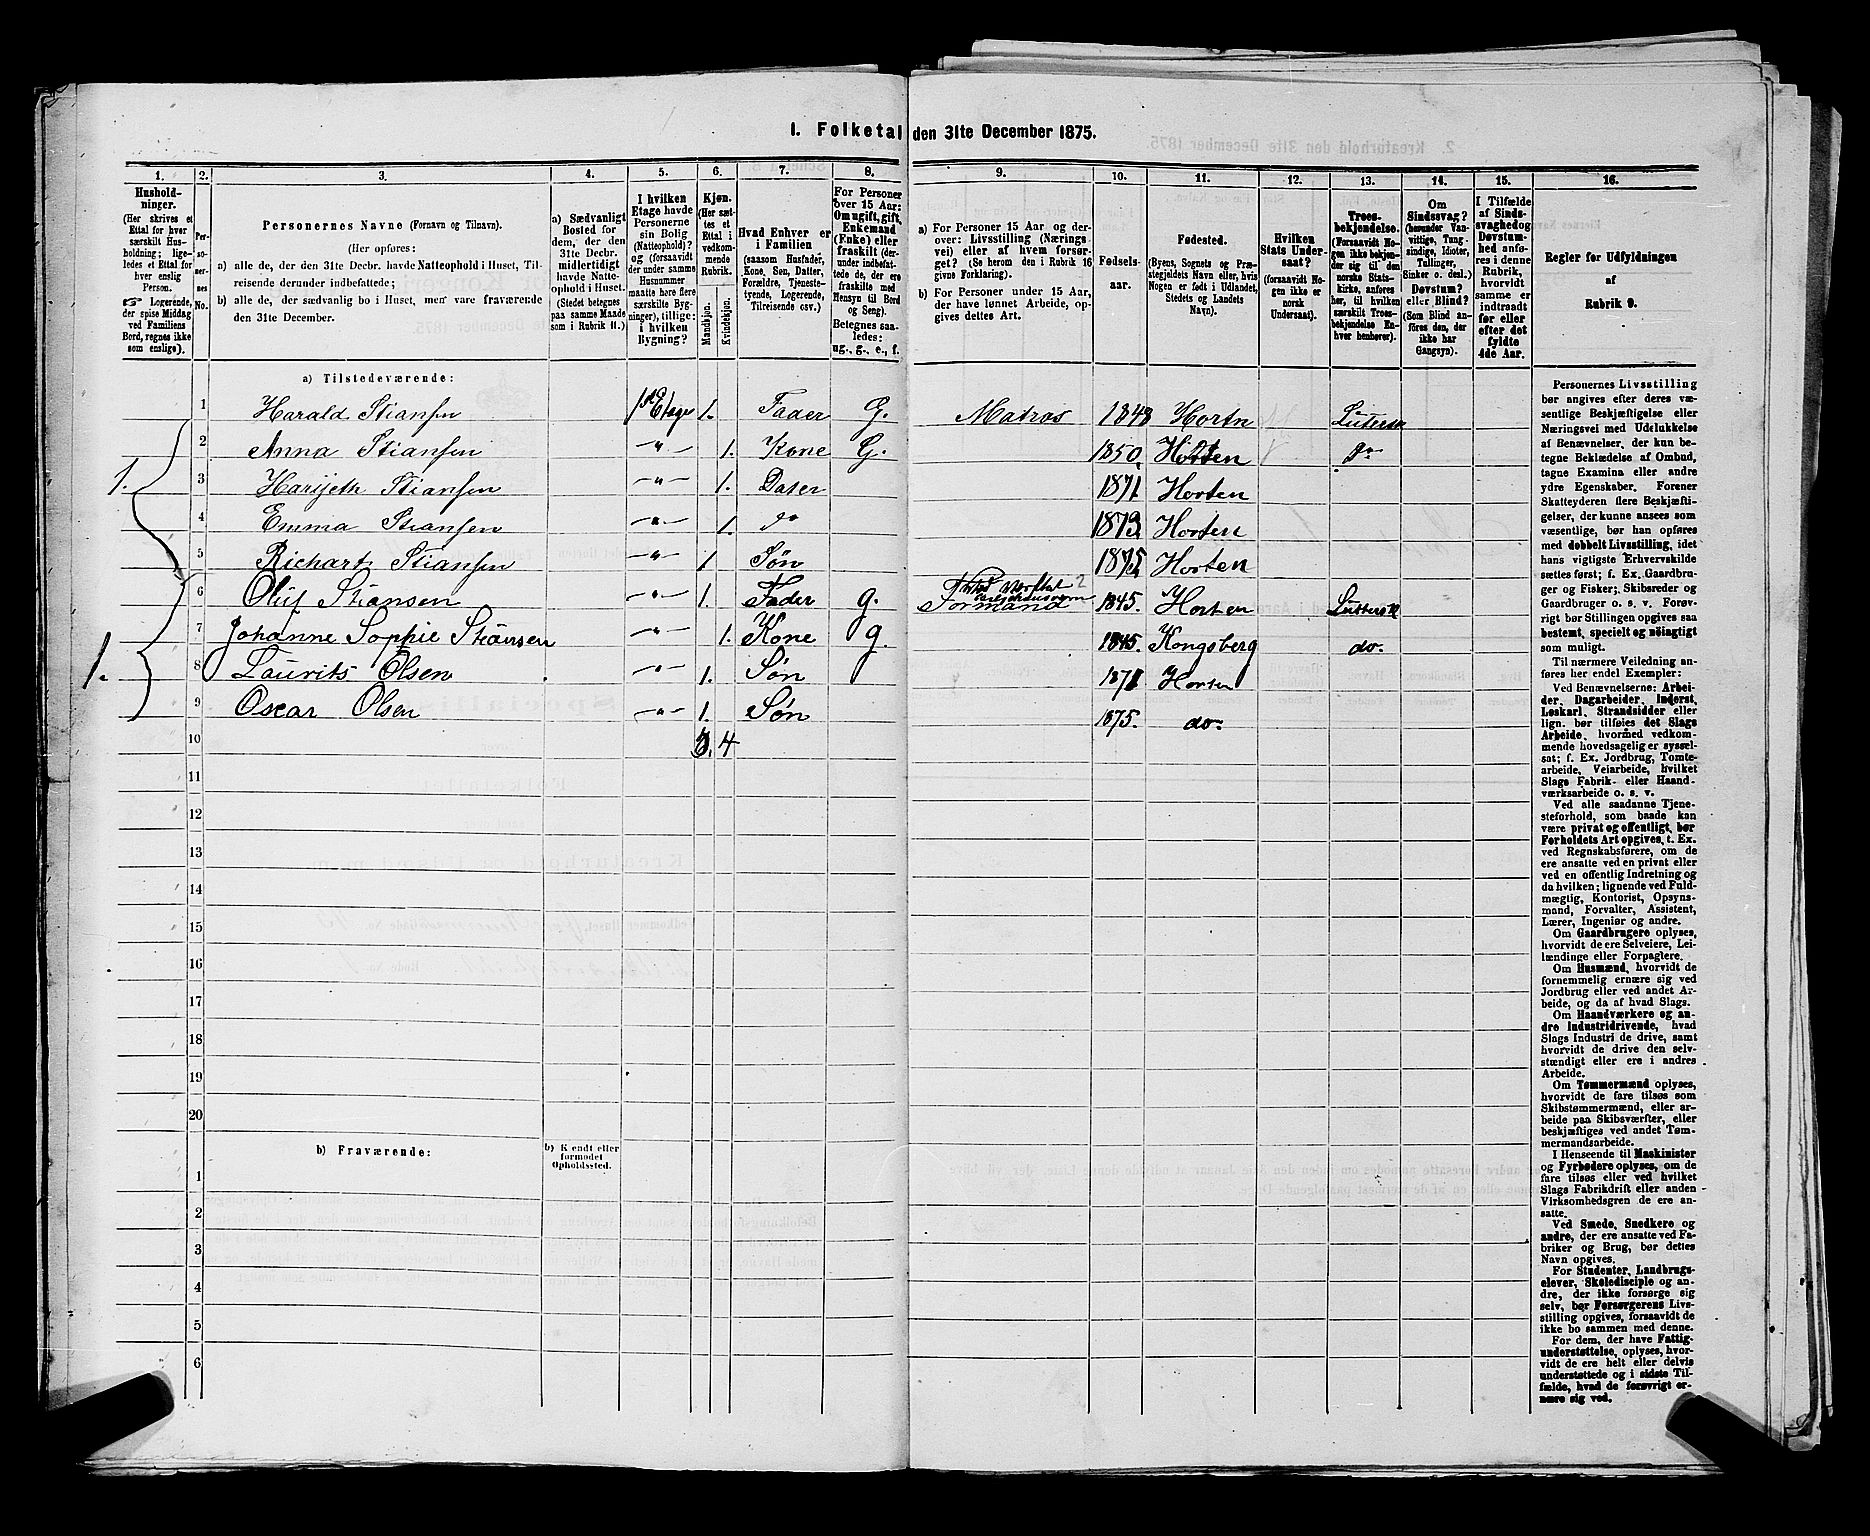 1. Folketal den 31te December 1875.
1. 2. 3. 4. 5. 6. 7. 8. 9. 10. 11. 12. 13. 14. 15. 16.
Hushold-
ninger.
(Her skrives et
Ettal for hver
særskilt Hus-
holdning; lige-
ledes et Ettal for
hver enslig
Person.
Logerende,
der spise Middag
ved Familiens
Bord, regnes ikke
som enslige).
Per-
so-
ner-
nes
No.
Personernes Navne (Fornavn og Tilnavn).
(Her opføres:
a) alle de, der den 31te Decbr. havde Natteophold i Huset, Til-
reisende derunder indbefattede;
b) alle de, der sædvanlig bo i Huset, men vare fraværende
den 31te December.
a) Sædvanligt
Bosted for
dem, der den
31te Decbr.
midlertidigt
havde Natte-
ophold i Huset.
(Stedet betegnes
paa samme Maade
som i Rubrik 11.)
I hvilken
Etage havde
Personerne
sin Bolig
(Natteophold)?
og (forsaavidt
der under samme
Husnummer
maatte høre flere
særskilte Byg-
ninger), tillige:
i hvilken
Bygning?
Kjøn.
(Her sæt-
tes et
Ettal i
vedkom-
mende
Rubrik.
Mandkjøn.
Kvindekjøn.
Hvad Enhver er
i Familien
(saasom Husfader,
Kone, Søn, Datter,
Forældre, Tjeneste-
tyende, Logerende,
Tilreisende osv.)
For Personer
over 15 Aar:
Om ugift, gift,
Enkemand
(Enke) eller
fraskilt (her-
under indbefat-
tede de, der ere
fraskilte med
Hensyn til Bord
og Seng).
Betegnes saa-
ledes:
ug., g., e., f.
a) For Personer 15 Aar og der-
over: Livsstilling (Nærings-
vei) eller af hvem forsør-
get? (Se herom den i Rubrik 16
givne Forklaring).
b) For Personer under 15 Aar,
der have lønnet Arbeide, op-
gives dettes Art.
Fødsels-
aar.
Fødested.
(Byens, Sognets og Præ-
stegjeldets Navn eller, hvis
Nogen er født i Udlandet,
Stedets og Landets
Navn).
Hvilken
Stats Under-
saat?
(forsaavidt No-
gen ikke er
norsk
Undersaat).
Troes-
bekjendelse.
(Forsaavidt No-
gen ikke bekjen-
der sig til den
norske Stats-
kirke, anføres
her, til hvilken
særskilt Troes-
bekjendelse En-
hver henhører).
Om
Sindssvag?
(herunder Van-
vittige, Tung-
sindige, Idioter,
Tullinger,
Sinker o. desl.)
Døvstum?
eller Blind?
(Som Blind an-
føres den, der
ikke har
Gangsyn).
I Tilfælde
af Sinds-
svaghed og
Døvstum-
hed anfø-
res i denne
Rubrik,
hvorvidt
samme er
indtraadt
før eller
efter det
fyldte
4de Aar.
Regler for Udfyldningen
af
Rubrik 9.
a) Tilstedeværende:
1 Harald Stiansen 1ste Etage 1. Fader G. Matros 1848 Horten Lutersk
2 Anna Stiansen -"- 1. Kone G. 1850. Horten do
1. 3 Harijeth Stiansen -"- 1. Dater 1871 Horten
4 Emma Stiansen -"- 1. do 1873 Horten
5 Richart Stiansen -"- 1 Søn 1875 Horten
6 Oluf Stiansen -"- 1. Fader g. Formand 1845. Horten Luttersk
7 Johanne Sophie Stiansen -"- 1. Kone g. 1845. Kongsberg do.
1. 8 Laurits Olsen -"- 1. Søn 1871 Horten
9 Oscar Olsen -"- 1. Søn 1875. do.
10 4
11
12
13
14
15
16
17
18
19
20
b) Fraværende:
b) Kjendt eller
formodet
Opholdssted.
1
2
3
4
5
6
Personernes Livsstilling
bør angives efter deres væ-
sentlige Beskjæftigelse eller
Næringsvei med Udelukkelse
af Benævnelser, der kun be-
tegne Beklædelse af Ombud,
tagne Examina eller andre
ydre Egenskaber. Forener
Skatteyderen flere Beskjæfti-
gelser, der kunne ansees som
væsentlige, bør han opføres
med dobbelt Livsstilling, idet
hans vigtigste Erhvervskilde
sættes først; f. Ex. Gaardbru-
ger og Fisker; Skibsreder og
Gaardbruger o. s. v. Forøv-
rigt bør Stillingen opgives saa
bestemt, specielt og nøiagtigt
som muligt.
Til nærmere Veiledning an-
føres her endel Exempler:
Ved Benævnelserne: Arbei-
der, Dagarbeider, Inderst,
Løskarl, Strandsidder eller
lign. bør tilføies det Slags
Arbeide, hvormed vedkom-
mende hovedsagelig er syssel-
sat; f. Ex. Jordbrug, Tomte-
arbeide, Veiarbeide, hvilket
Slags Fabrik- eller Haand-
værksarbeide o. s. v.
Ved alle saadanne Tjene-
steforhold, som baade kan
være privat og offentligt, bør
Forholdets Art opgives, t. Ex.
ved Regnskabsførere, om de
ere ansatte ved en privat eller
ved en offentlig Indretning og
da hvilken; lignende ved Fuld-
mægtig, Kontorist, Opsyns-
mand, Forvalter, Assistent,
Lærer, Ingeniør og andre.
Om Gaardbrugere oplyses,
hvorvidt de ere Selveiere, Lei-
lændinge eller Forpagtere.
Om Husmænd, hvorvidt de
fornemmelig ernære sig ved
Jordbrug eller ved andet Ar-
beide, og da af hvad Slags.
Om Haandværkere og an-
dre Industridrivende, hvad
Slags Industri de drive, samt
hvorvidt de drive den selv-
stændigt eller ere i andres
Arbeide.
Om Tømmermænd oplyses,
hvorvidt de fare tilsøs som
Skibstømmermænd, eller ar-
beide paa Skibsværfter, eller
beskjæftiges ved andet Tøm-
mermandsarbeide.
I Henseende til Maskinister
og Fyrbødere oplyses, om de
fare tilsøs eller ved hvilket
Slags Fabrikdrift eller anden
Virksomhedsgren de ere an-
satte.
Ved Smede, Snedkere og
andre, der ere ansatte ved Fa-
briker og Brug, bør dettes
Navn opgives.
For Studenter, Landbrugs-
elever, Skoledisciple og an-
dre, der ikke forsørge sig
selv, bør Forsørgerens Livs-
stilling opgives, forsaavidt de
ikke bo sammen med denne.
For dem, der have Fattig-
understøttelse, oplyses, hvor-
vidt de ere helt eller delvis
understøttede og i sidste Til-
fælde, hvad de forøvrigt er-
nære sig ved.